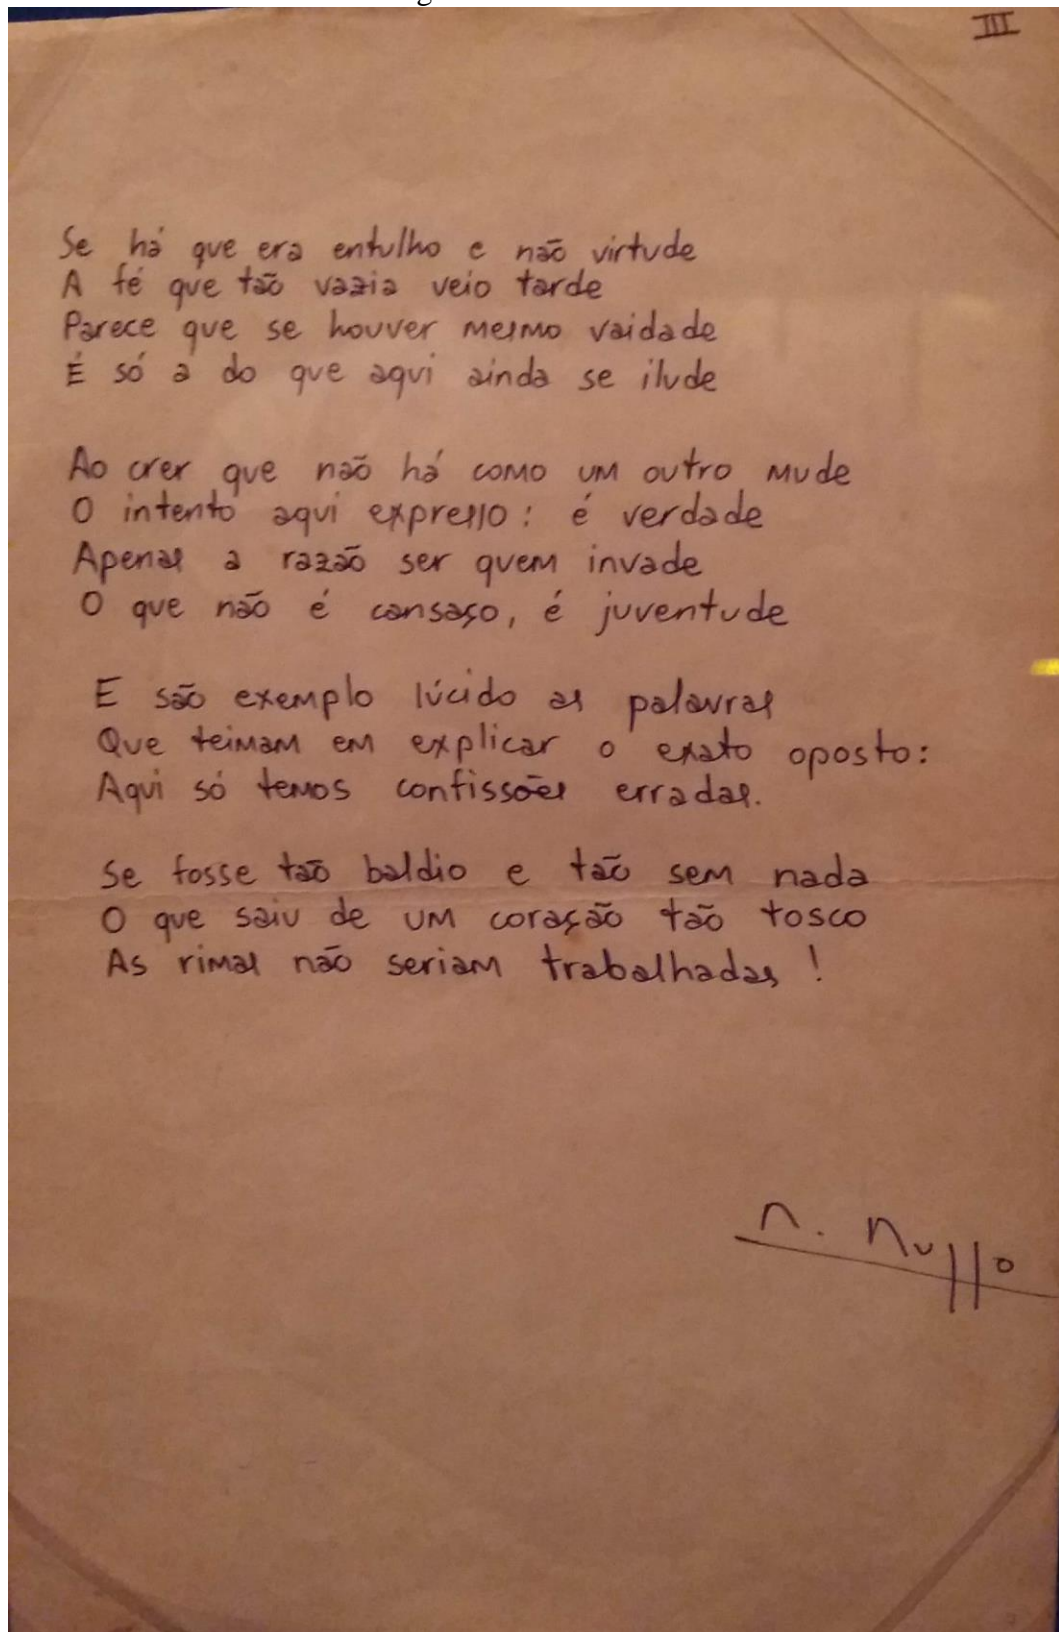 III
Se há que era entulho e não virtude
A fé que tão vazia veio tarde
Parece que se houver mesmo vaidade
É só a do que aqui ainda se ilude
Ao crer que não há como um outro mude
O intento aqui expresso: é verdade
Apenas a razão ser quem invade
O que não é cansaço, é juventude
E são exemplo lúcido as palavras
Que teimam em explicar o exato oposto:
Aqui só temos confissões erradas.
Se fosse tão baldio e tão sem nada
O que saiu de um coração tão tosco
As rimas não seriam trabalhadas!
n.